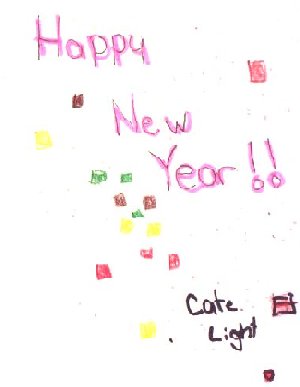 Happy
New
Year!!
Cate
Light